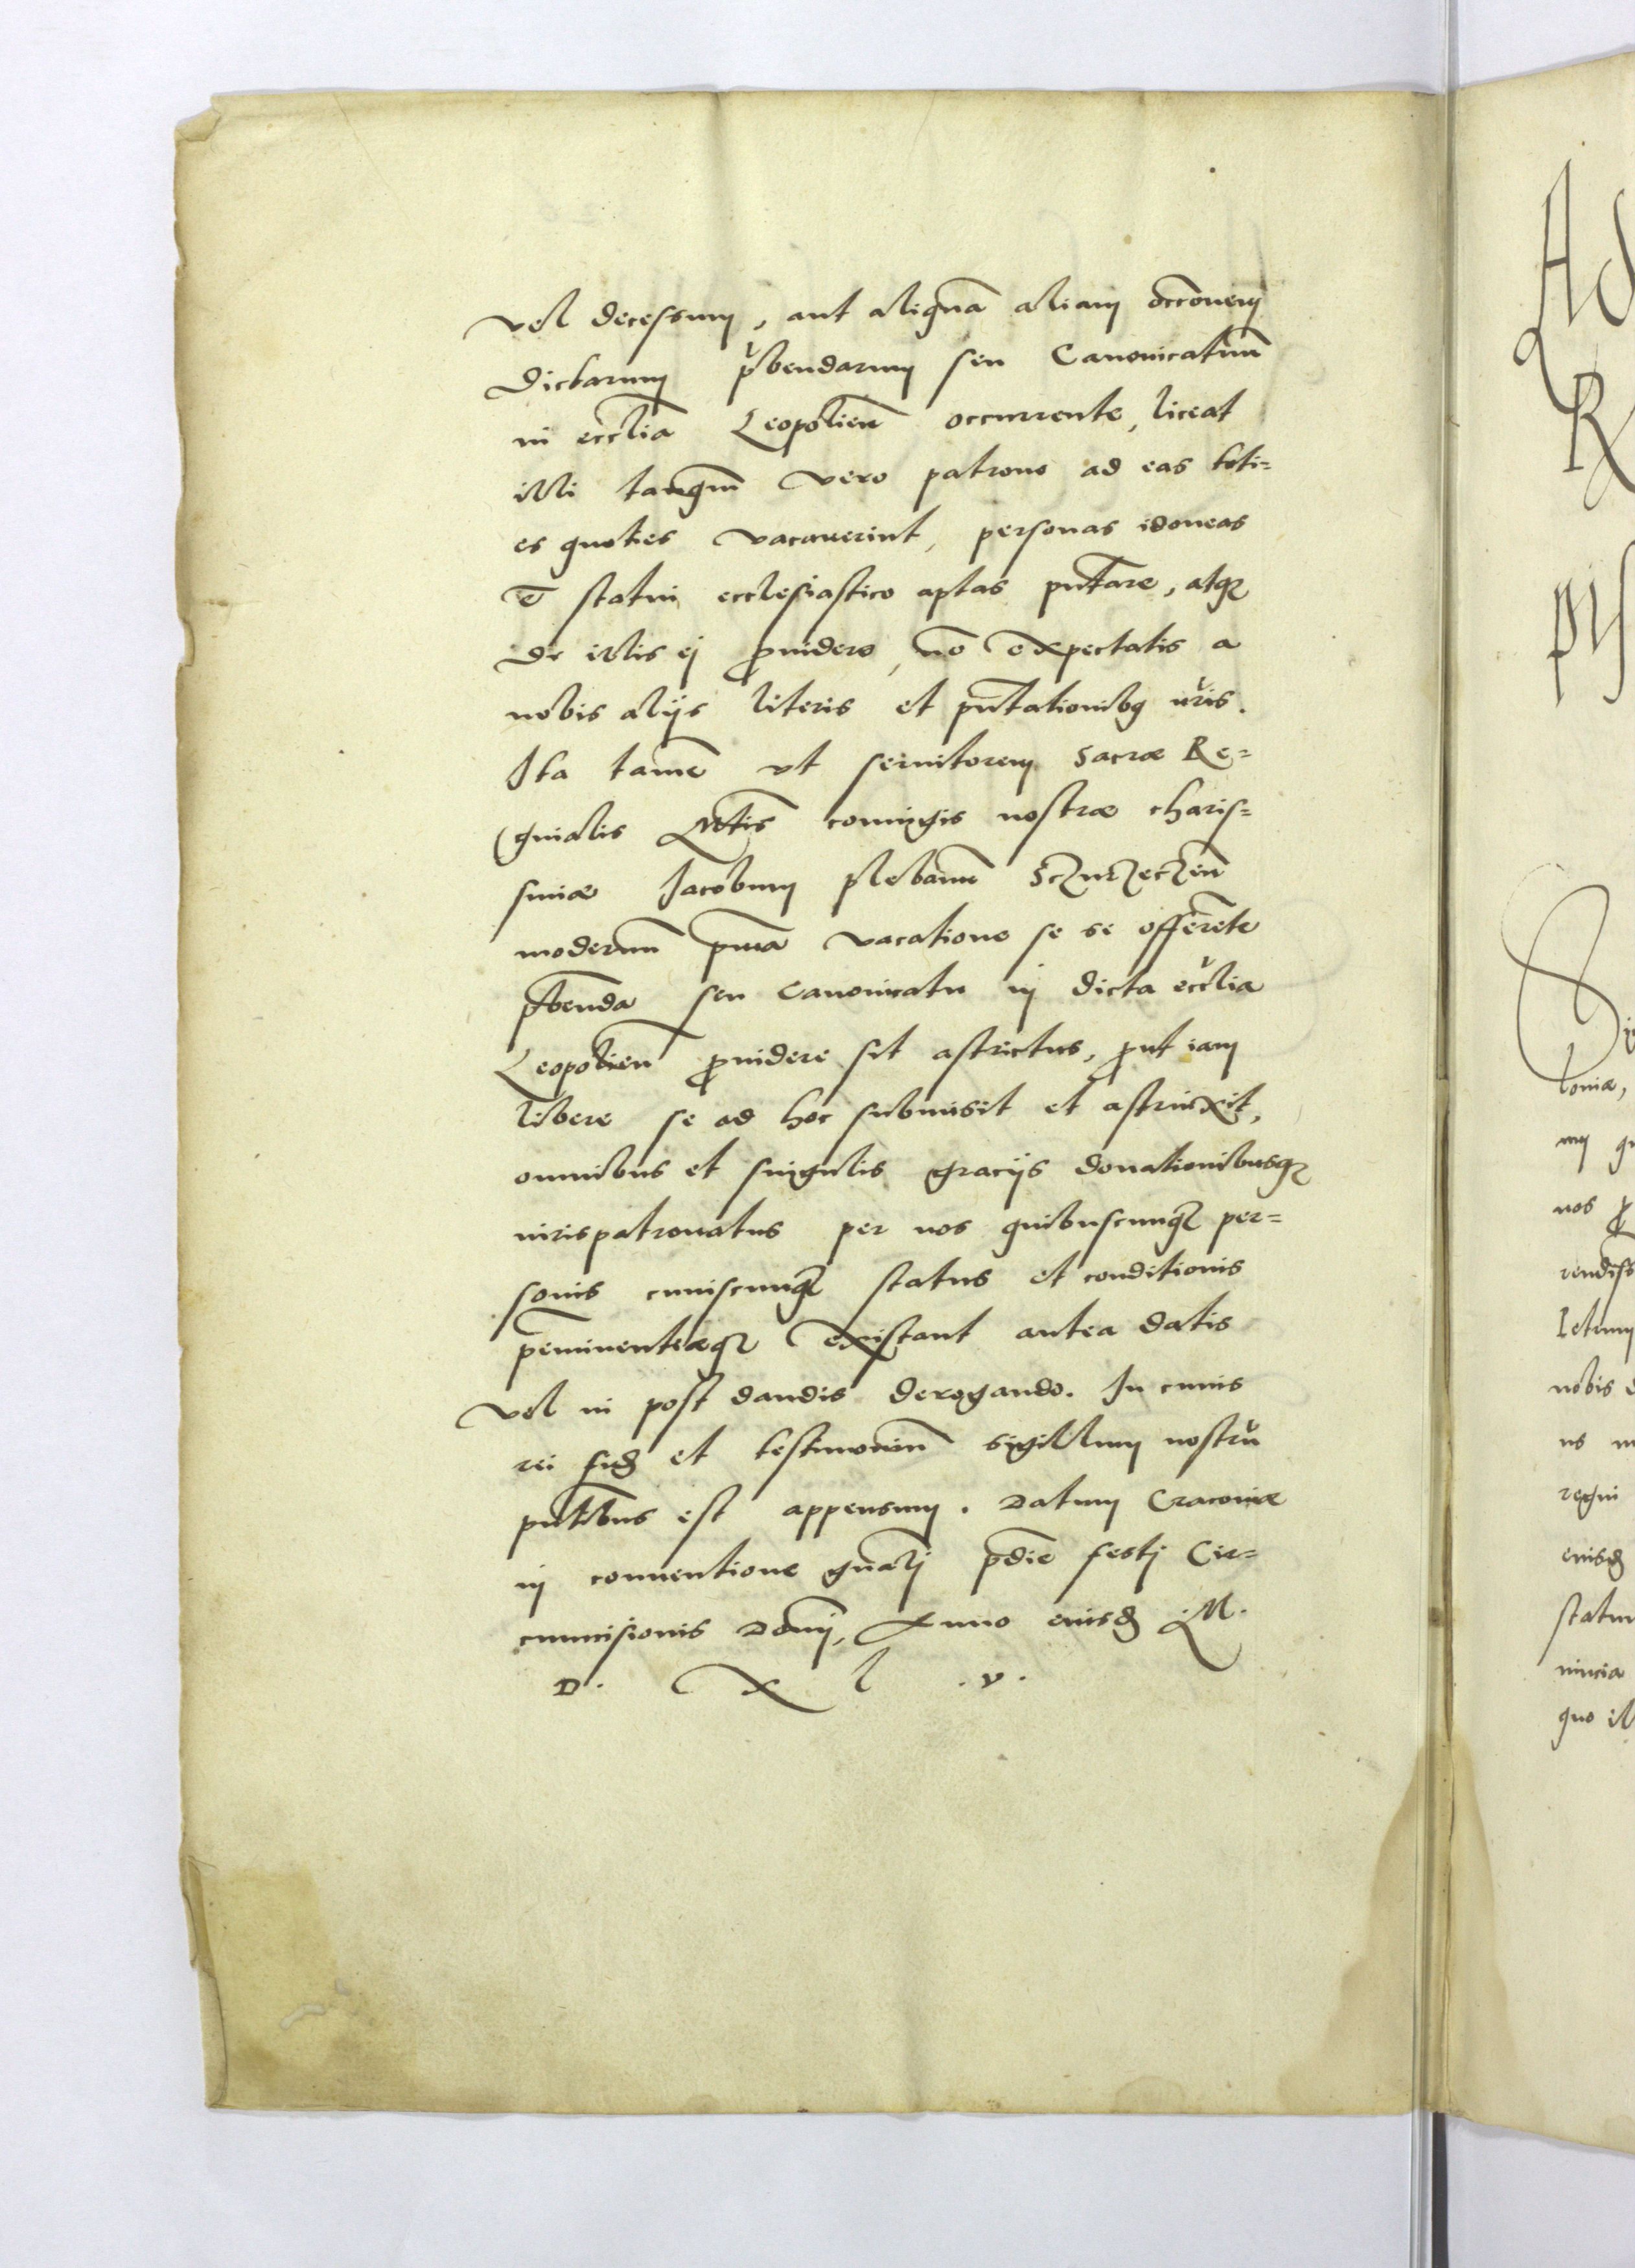 vel decessum, aut aliquā aliam occōnem
dictarum p̄bendarum seu Canonicatuū
in eccl̄ia Leopolien̄ occurrente, liceat
illi tanq̄m vero patrono ad eas toti=
es quoties vacauerint, personas idoneas
et statui ecclesiastico aptas pn̄tare, atq3
de illis ei ꝓuidere, nō expectatis a
nobis alijs literis et pn̄tationibꝫ nr̄is.
Ita tamē vt seruitorem Sacræ Re=
ginalis Mt̄is coniugis nostræ charis=
simæ Jacobum plebanū Sczurzeczen̄
modernū prīma vacatione se se offerēte
p̄benda seu canonicatu in dicta eccl̄ia
Leopolien̄ ꝓuidere sit astrictus, ꝓut iam
libere se ad hoc submisit et astrinxit,
omnibus et singulis gracijs donationibusq3
iurispatronatus per nos quibuscunq3 per=
sonis cuiuscunq3 status et conditionis
p̄eminentiæq3 existant antea datis
vel in post dandis derogando. In cuius
rei fidē et testimoniū sigillum nostrū
pn̄tibus est appensum. Datum Cracouiæ
in conuentione gn̄ali p̄die festi Cir=
cumcisionis Domī, Anno eiusdē M.
D. X L .v.
A
R
lonia,
nos ꝓ
nobis
regni
statu
quo il